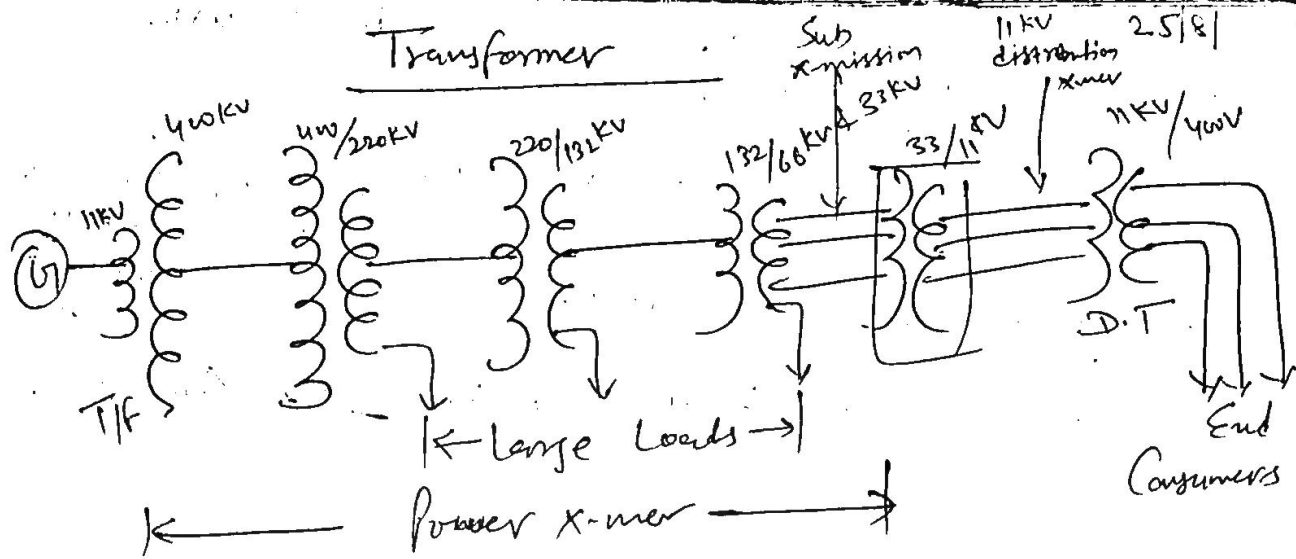 Transformer
Sub
x-mission
11 KV
distribution
x-mer
25/8/
400KV
400/220KV
220/132KV
132/66KV & 33KV
33/11KV
11KV/400V
11KV
G
T/F
D.T
Large Loads
End
Consumers
Power x-mer